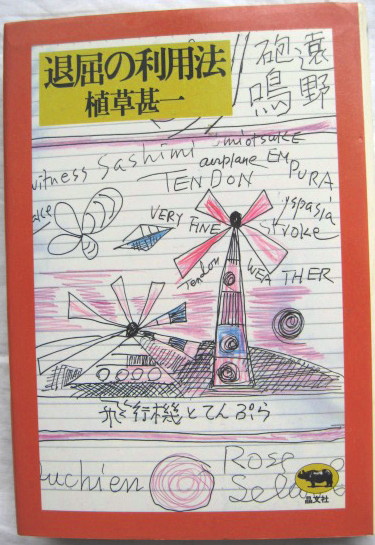 退屈の利用法
植草甚一
遠野
砲鳴
witness Sashimi
miotsuke
airplane EMPURA
TENDON
yspasia
VERY FINE
stroke
Tendon
WEATHER
飛行機とてんぷら
uchien
Rose
Sela
晶文社